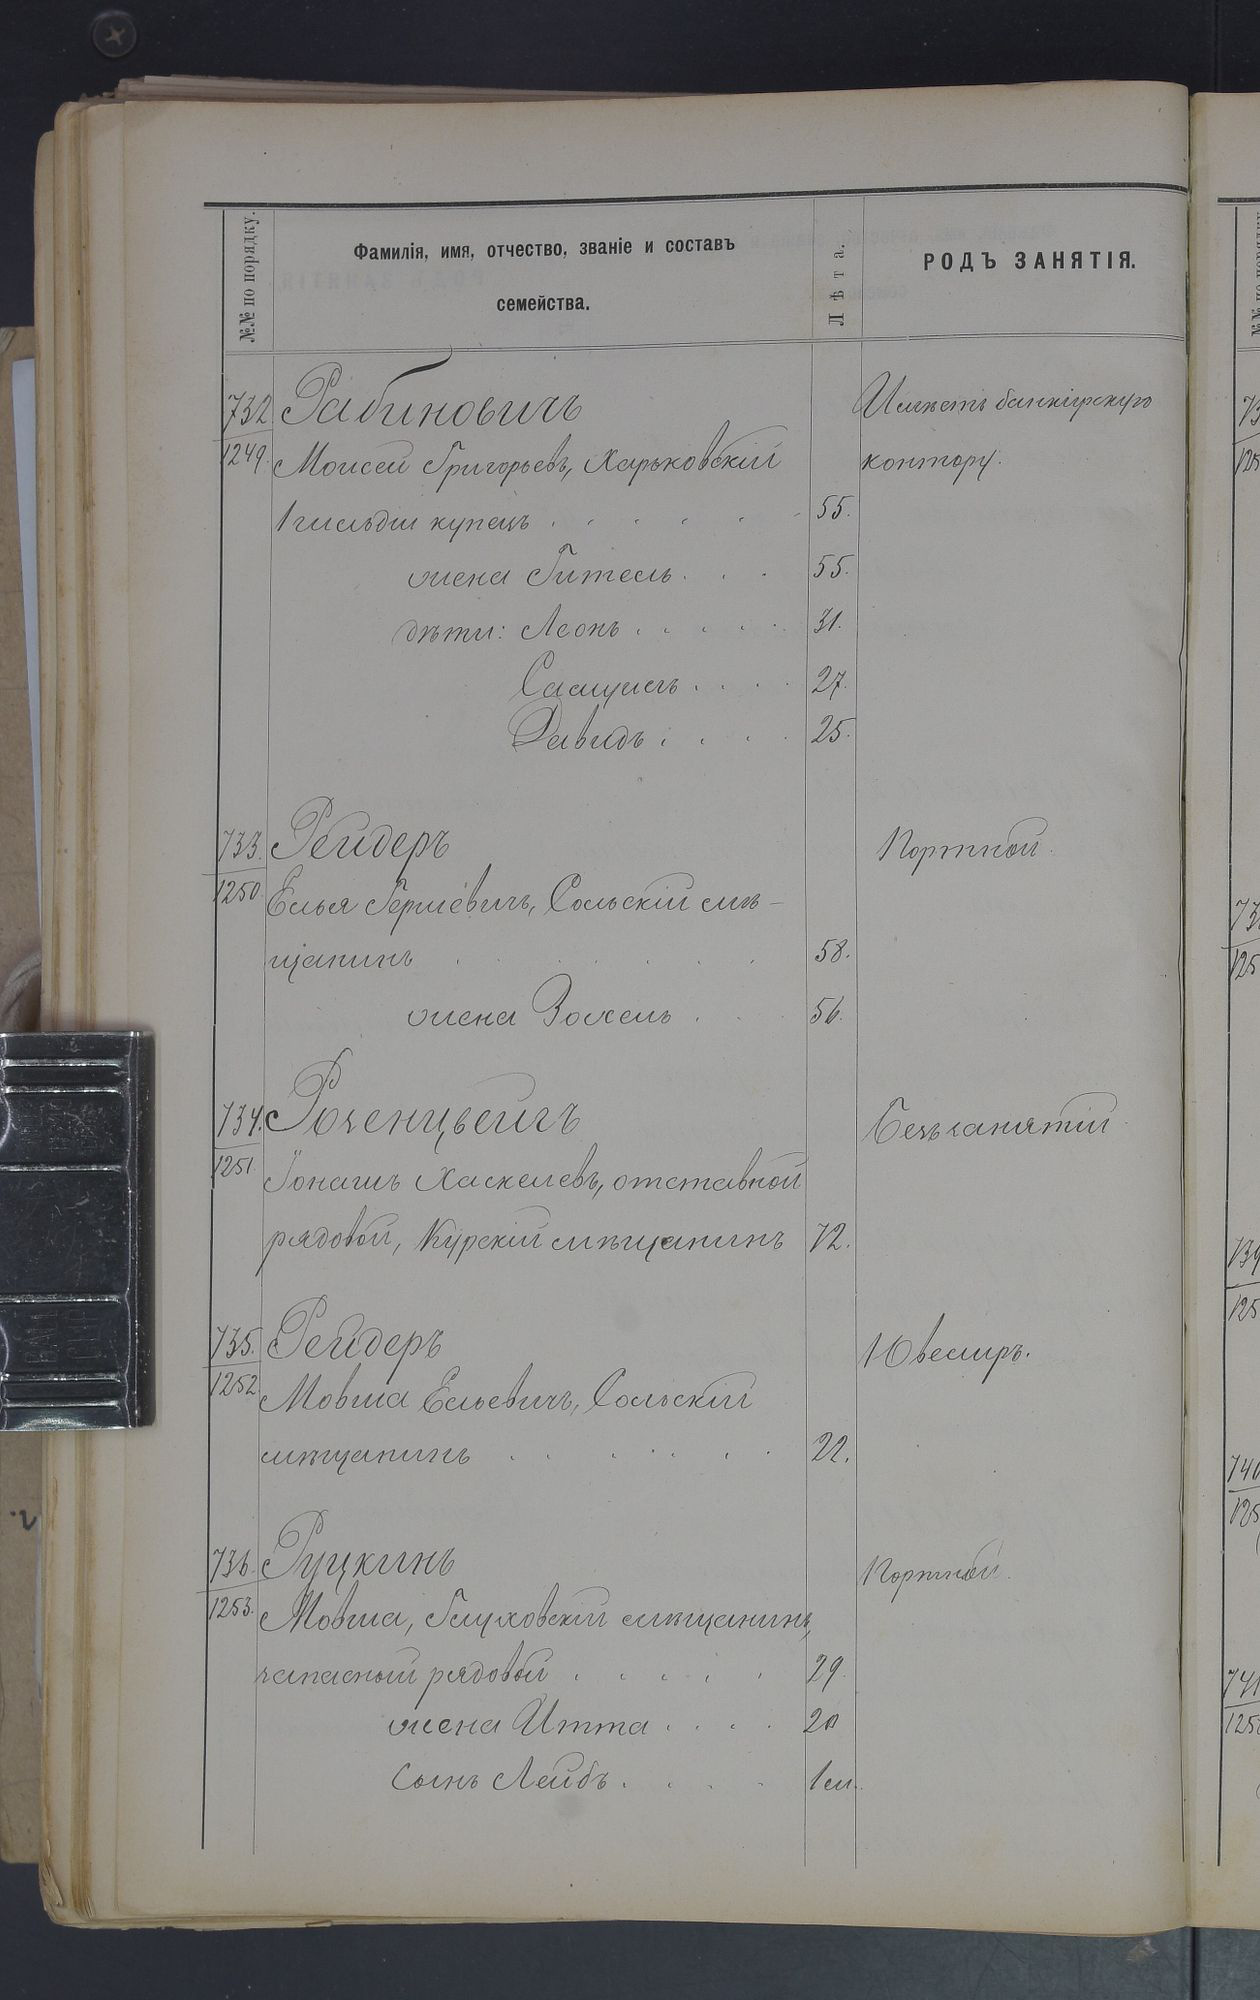 №№ по порядку.
Фамилія, имя, отчество, званіе и составъ
семейства.
Лѣта.
РОДЪ ЗАНЯТІЯ.
732 Рабиновичъ Имѣетъ банкірскую
1249. Моисей Григорьевъ, Харьковскій контору.
1 гильдіи купецъ 55.
жена Гитель 55.
дѣти: Леонъ 31.
Самуилъ 27.
Давидъ 25.
733. Рейдеръ Портной
1250. Елья Гершевичъ, Сольскій мѣ-
щанинъ 58.
жена Рохель 56.
734. Розенцвейгъ Безъ занятій
1251. Іонашъ Хаскелевъ, отставной
рядовой, Курскій мѣщанинъ 72.
735. Рейдеръ Ювелиръ.
1252. Мовша Ельевичъ, Сольскій
мѣщанинъ 22.
736. Руцкинъ Портной.
1253. Мовша, Глуховскій мѣщанинъ,
запасный рядовой 29.
жена Итта 20
сынъ Лейбъ 1 м.